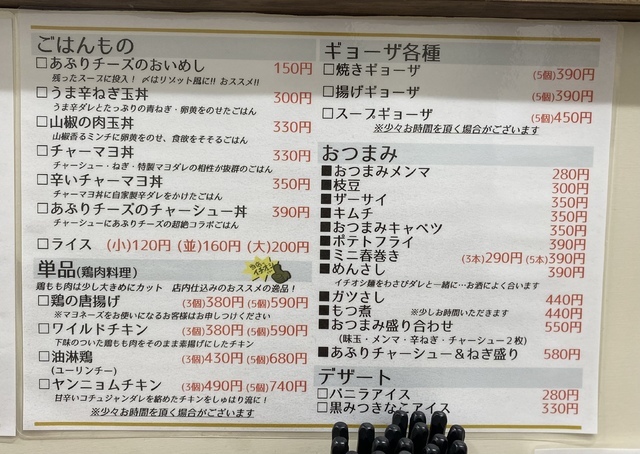 ごはんもの
□あぶりチーズのおいめし 150円
残ったスープに投入！〆はリゾット風に!! おススメ!!
□うま辛ねぎ玉丼 300円
うま辛ダレとたっぷりの青ねぎ・卵黄をのせたごはん
□山椒の肉玉丼 330円
山椒香るミンチに卵黄をのせ、食欲をそそるごはん
□チャーマヨ丼 330円
チャーシュー・ねぎ・特製マヨダレの相性が抜群のごはん
□辛いチャーマヨ丼 350円
チャーマヨ丼に自家製辛ダレをかけたごはん
□あぶりチーズのチャーシュー丼 390円
チャーシューにあぶりチーズの超絶コラボごはん
□ライス (小)120円 (並)160円 (大)200円
単品(鶏肉料理)
鶏もも肉は少し大きめにカット 店内仕込みのおススメの逸品！
□鶏の唐揚げ (3個)380円 (5個)590円
※マヨネーズをお使いになるお客様はお申しつけください
□ワイルドチキン (3個)380円 (5個)590円
下味のついた鶏もも肉をそのまま素揚げにしたチキン
□油淋鶏 (3個)430円 (5個)680円
(ユーリンチー)
□ヤンニョムチキン (3個)490円 (5個)740円
甘辛いコチュジャンダレを絡めたチキンをしゅはり流に！
※少々お時間を頂く場合がございます
ギョーザ各種
□焼きギョーザ (5個)390円
□揚げギョーザ (5個)390円
□スープギョーザ (5個)450円
※少々お時間を頂く場合がございます
おつまみ
■おつまみメンマ 280円
■枝豆 300円
■ザーサイ 350円
■キムチ 350円
■おつまみキャベツ 350円
■ポテトフライ 390円
■ミニ春巻き (3本)290円 (5本)390円
■めんさし 390円
イチオシ麺をわさびダレと一緒に…お酒によく合います
■ガツさし 440円
■もつ煮 ※少しお時間いただきます 440円
■おつまみ盛り合わせ 550円
(味玉・メンマ・辛ねぎ・チャーシュー2枚)
■あぶりチャーシュー＆ねぎ盛り 580円
デザート
□バニラアイス 280円
□黒みつきなこアイス 330円